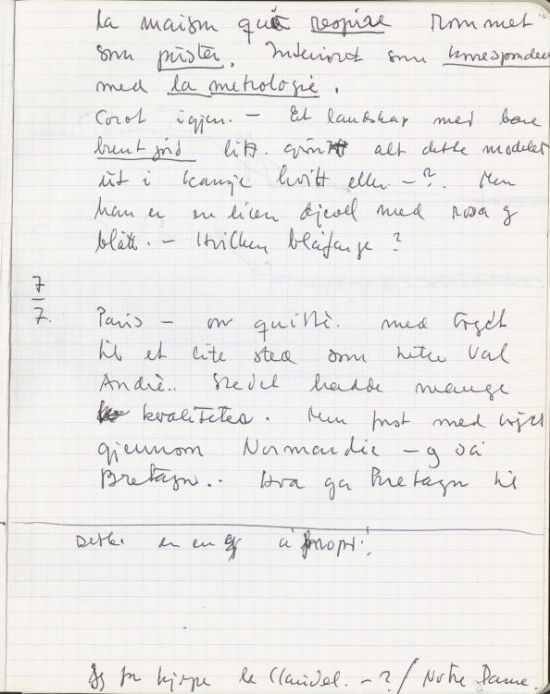 La maison qui respire Rommet
som puster. Interiøret som korresponderer
med la metrologie.
Corot igjen. — Et landskap med bare
brent jord litt grønt alt dette modelert
ut i kanje hvitt eller —? Men
han er en liten djevel med rosa og
blått. — Hvilken blåfarge?
7/7. Paris — on quitte. med toget
til et lite sted som heter Val
André.. Stedet hadde mange
kvaliteter. Men først med toget
gjennom Normandie — og så
Bretagn.. Hva ga Bretagn til
Dette er en à propos!
kjøpe le Claudel. —? / Notre Dame.